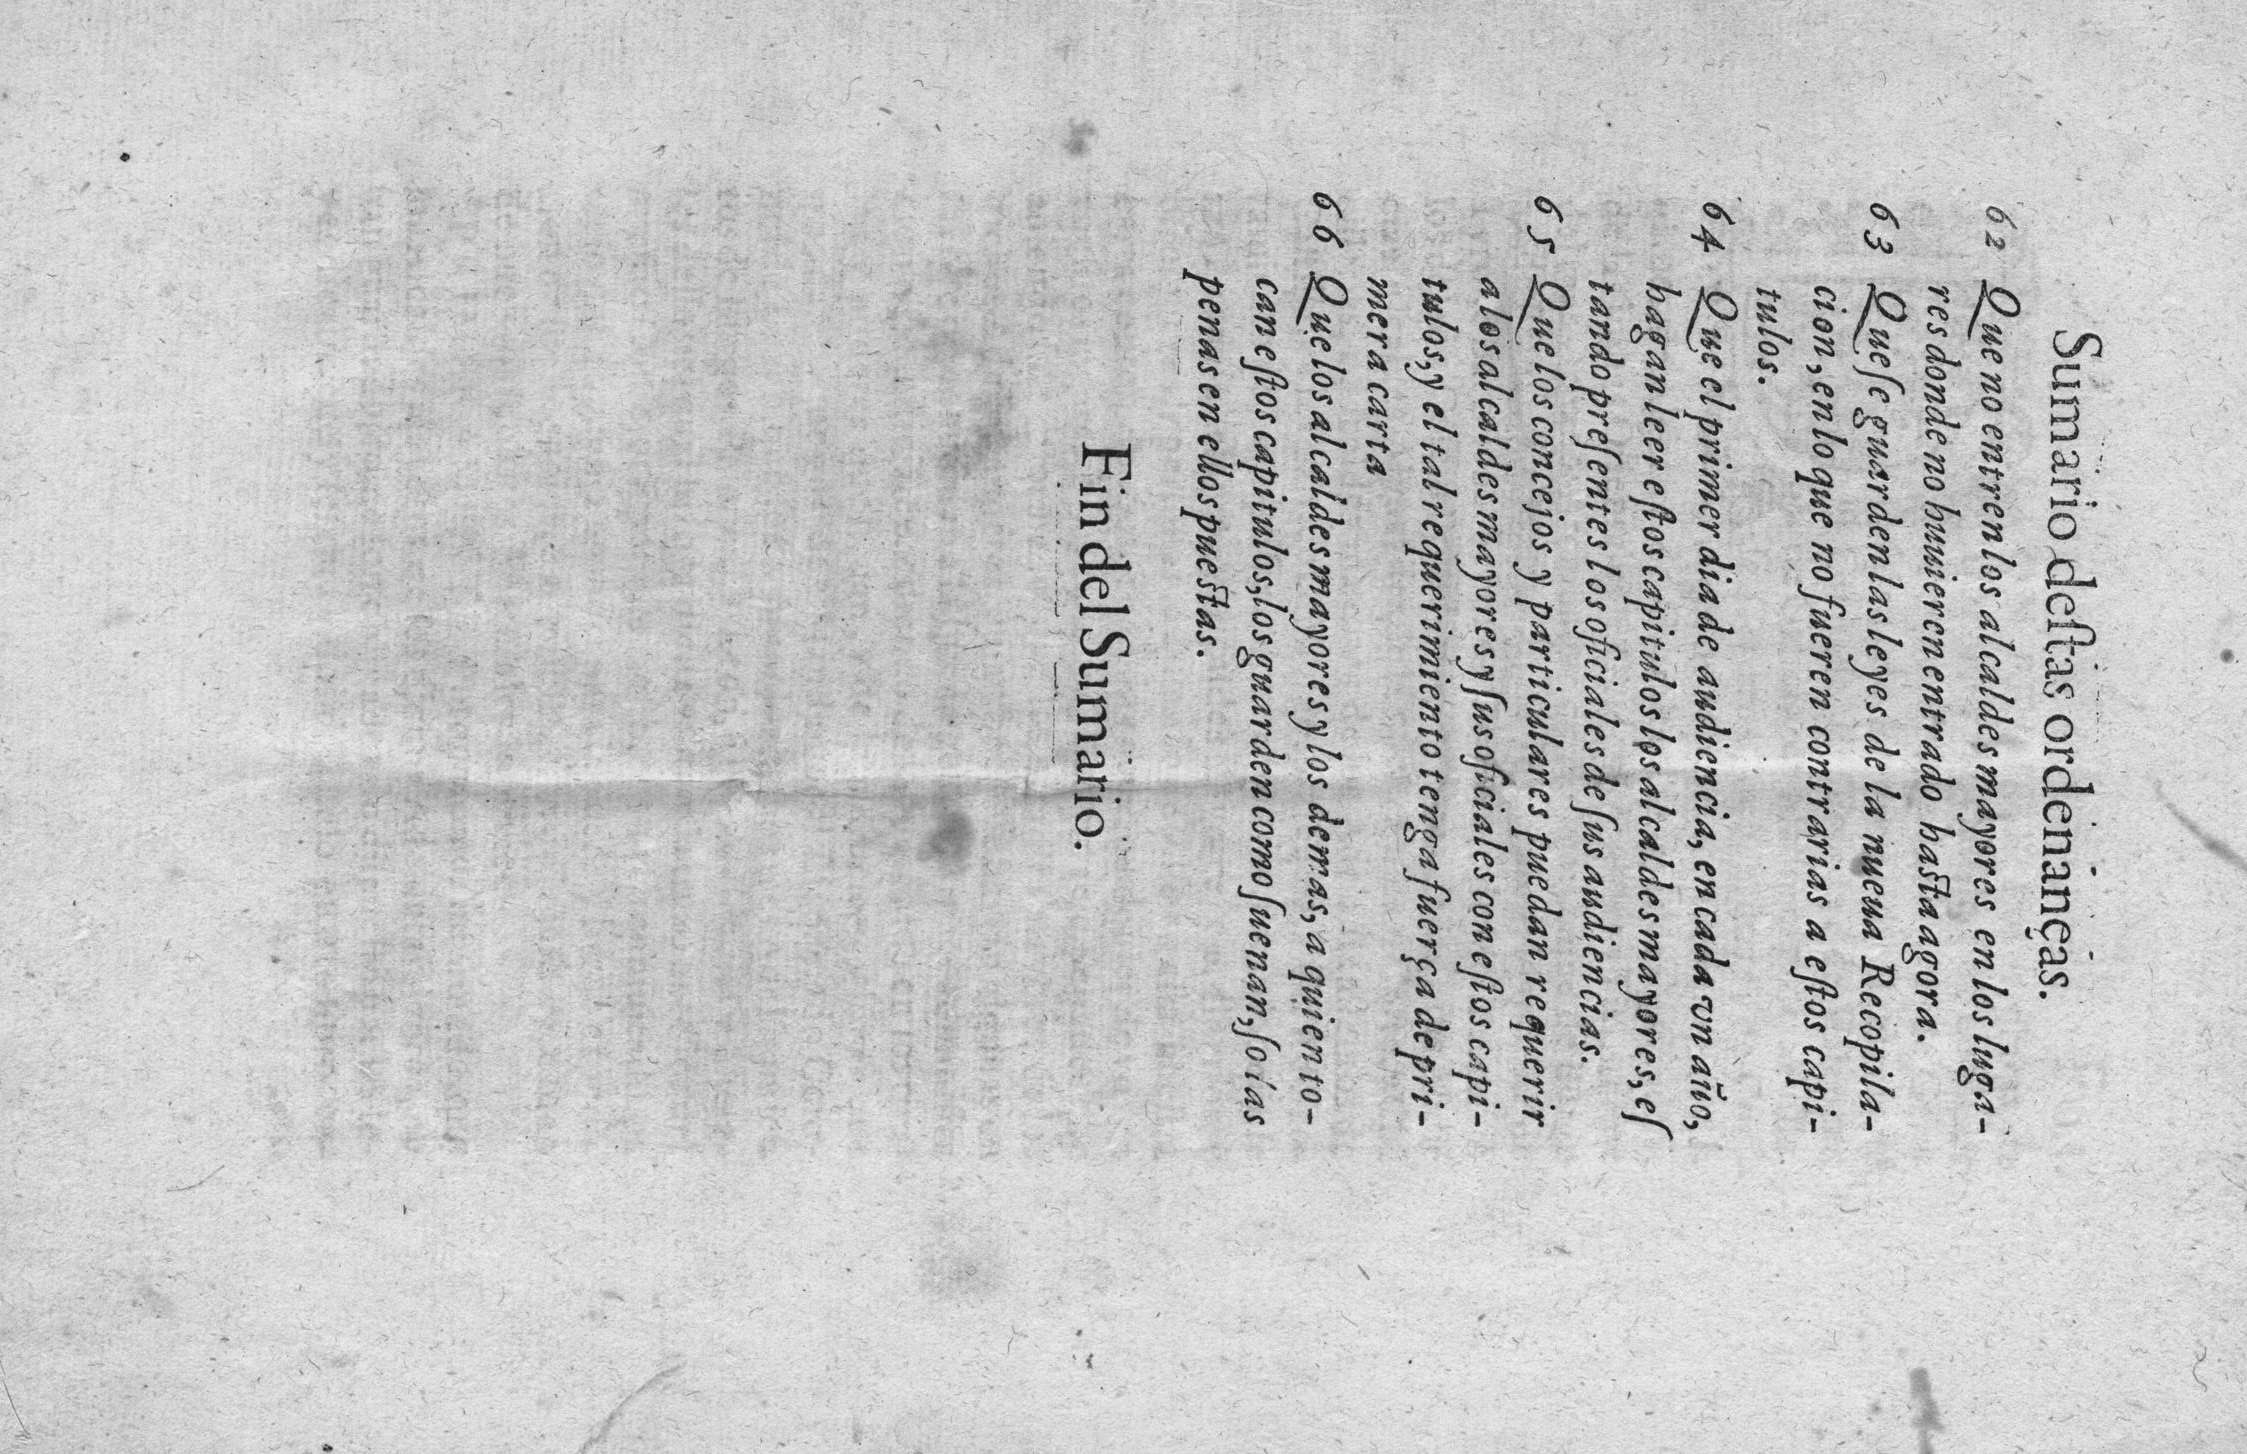 Sumario deſtas ordenanças.
62 Que no entren los alcaldes mayores en los luga-
res donde no huuieren entrado haſta agora.
63 Que ſe guarden las leyes de la nueua Recopila-
cion, en lo que no fueren contrarias a eſtos capi-
tulos.
64 Que el primer dia de audiencia, en cada vn año,
hagan leer eſtos capitulos los alcaldes mayores, eſ
tando preſentes los oficiales de ſus audiencias.
65 Que los concejos y particulares puedan requerir
a los alcaldes mayores y ſus oficiales con eſtos capi-
tulos, y el tal requerimiento tenga fuerça de pri-
mera carta
66 Que los alcaldes mayores y los demas, a quien to-
can eſtos capitulos, los guarden como ſuenan, ſo las
penas en ellos pueſtas.
Fin del Sumario.